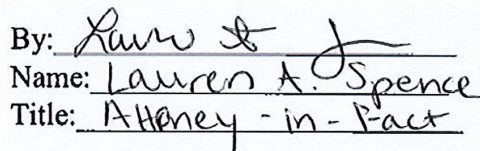 By:
Name: Lauren A. Spence
Title: Attorney-in-Fact